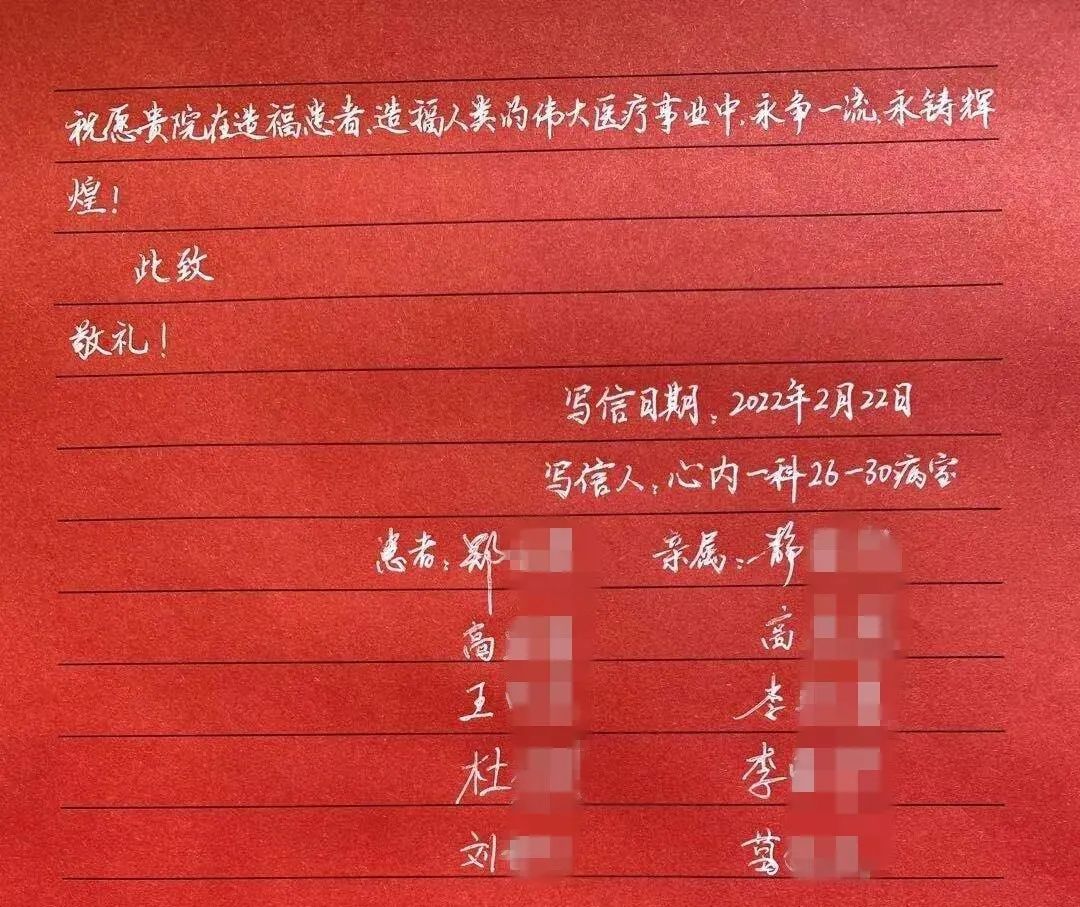 祝愿贵院在造福患者、造福人类的伟大医疗事业中，永争一流，永铸辉
煌！
此致
敬礼！
写信日期：2022年2月22日
写信人：心内一科26-30病室
患者：郑 亲属：静
高 高
王 李
杜 李
刘 葛